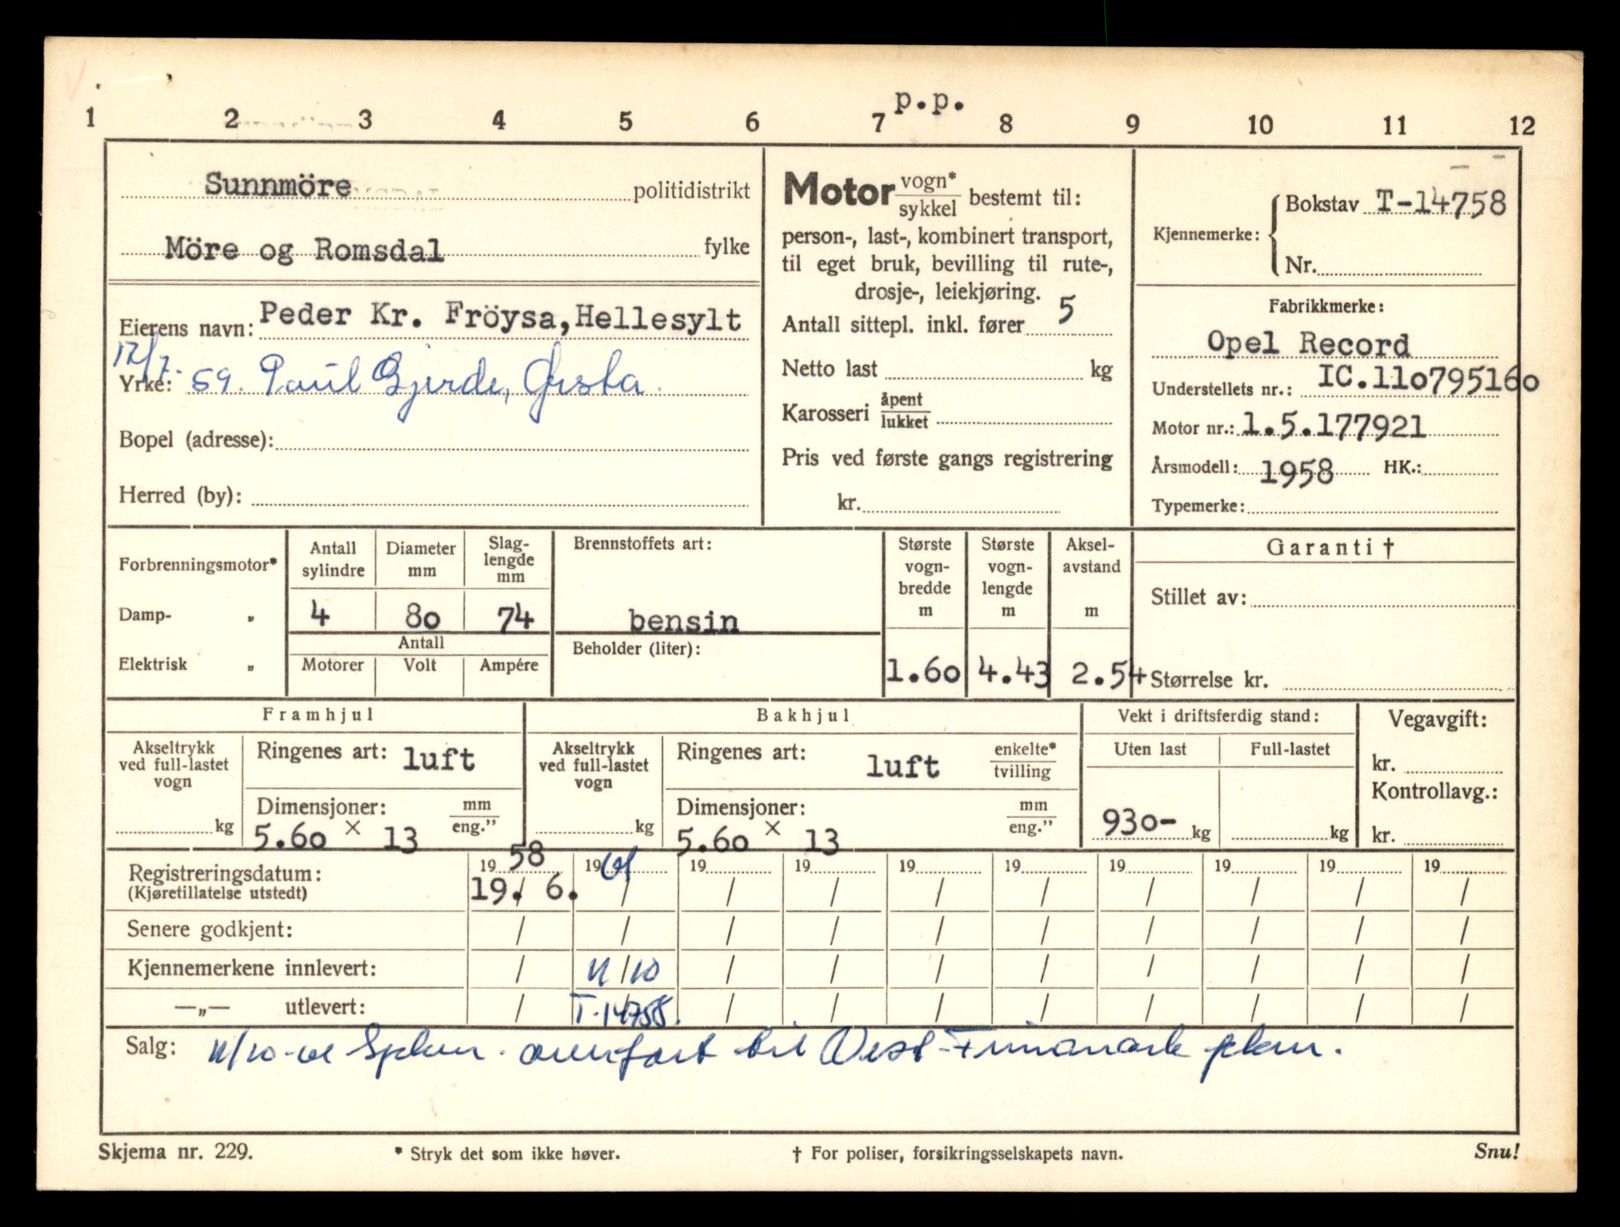 p.p.
1 2 3 4 5 6 7 8 9 10 11 12
Sunnmöre politidistrikt
Möre og Romsdal fylke
Eierens navn: Peder Kr. Fröysa, Hellesylt
12/7. 59. Paul Gjerde, Ørsta.
Yrke:
Bopel (adresse):
Herred (by):
Motor vogn* sykkel bestemt til:
person-, last-, kombinert transport,
til eget bruk, bevilling til rute-,
drosje-, leiekjøring.
Antall sittepl. inkl. fører 5
Netto last kg
Karosseri åpent lukket
Pris ved første gangs registrering
kr.
Kjennemerke: Bokstav T-14758
Nr.
Fabrikkmerke:
Opel Record
Understellets nr.: IC.110795160
Motor nr.: 1.5.177921
Årsmodell: 1958 HK.:
Typemerke:
Forbrenningsmotor*
Damp- „
Elektrisk „
Antall sylindre 4
Diameter mm 80
Slag-lengde mm 74
Antall
Motorer Volt Ampére
Brennstoffets art:
bensin
Beholder (liter):
Største vogn-bredde m 1.60
Største vogn-lengde m 4.43
Aksel-avstand m 2.54
Garanti †
Stillet av:
Størrelse kr.
Framhjul
Akseltrykk ved full-lastet vogn kg
Ringenes art: luft
Dimensjoner: mm eng.”
5.60 × 13
Bakhjul
Akseltrykk ved full-lastet vogn kg
Ringenes art: luft enkelte* tvilling
Dimensjoner: mm eng.”
5.60 × 13
Vekt i driftsferdig stand:
Uten last Full-lastet
930- kg kg
Vegavgift:
kr.
Kontrollavg.:
kr.
Registreringsdatum: 19 58 19 61 19 19 19 19 19 19 19 19
(Kjøretillatelse utstedt) 19. / 6. / / / / / / / / /
Senere godkjent: / / / / / / / / / /
Kjennemerkene innlevert: / 11/10 / / / / / / / /
—„— utlevert: / T-14758. / / / / / / / /
Salg: 11/10-61 Spkm. overført til Vest-Finnmark pkm.
Skjema nr. 229.
* Stryk det som ikke høver.
† For poliser, forsikringsselskapets navn.
Snu!